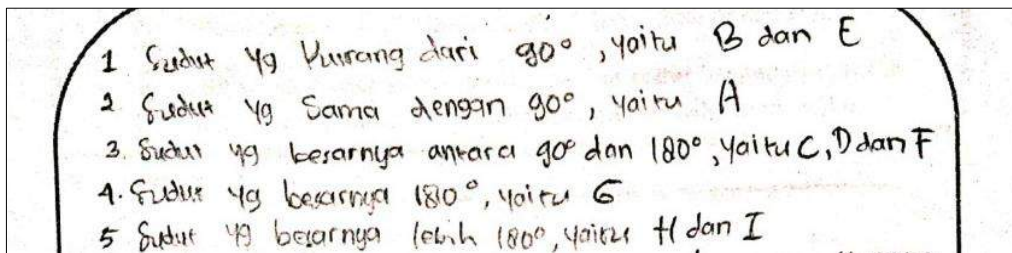 1 Sudut yg kurang dari 90°, yaitu B dan E
2 Sudut yg Sama dengan 90°, yaitu A
3. Sudut yg besarnya antara 90° dan 180°, yaitu C, D dan F
4. Sudut yg besarnya 180°, yaitu G
5 Sudut yg besarnya lebih 180°, yaitu H dan I